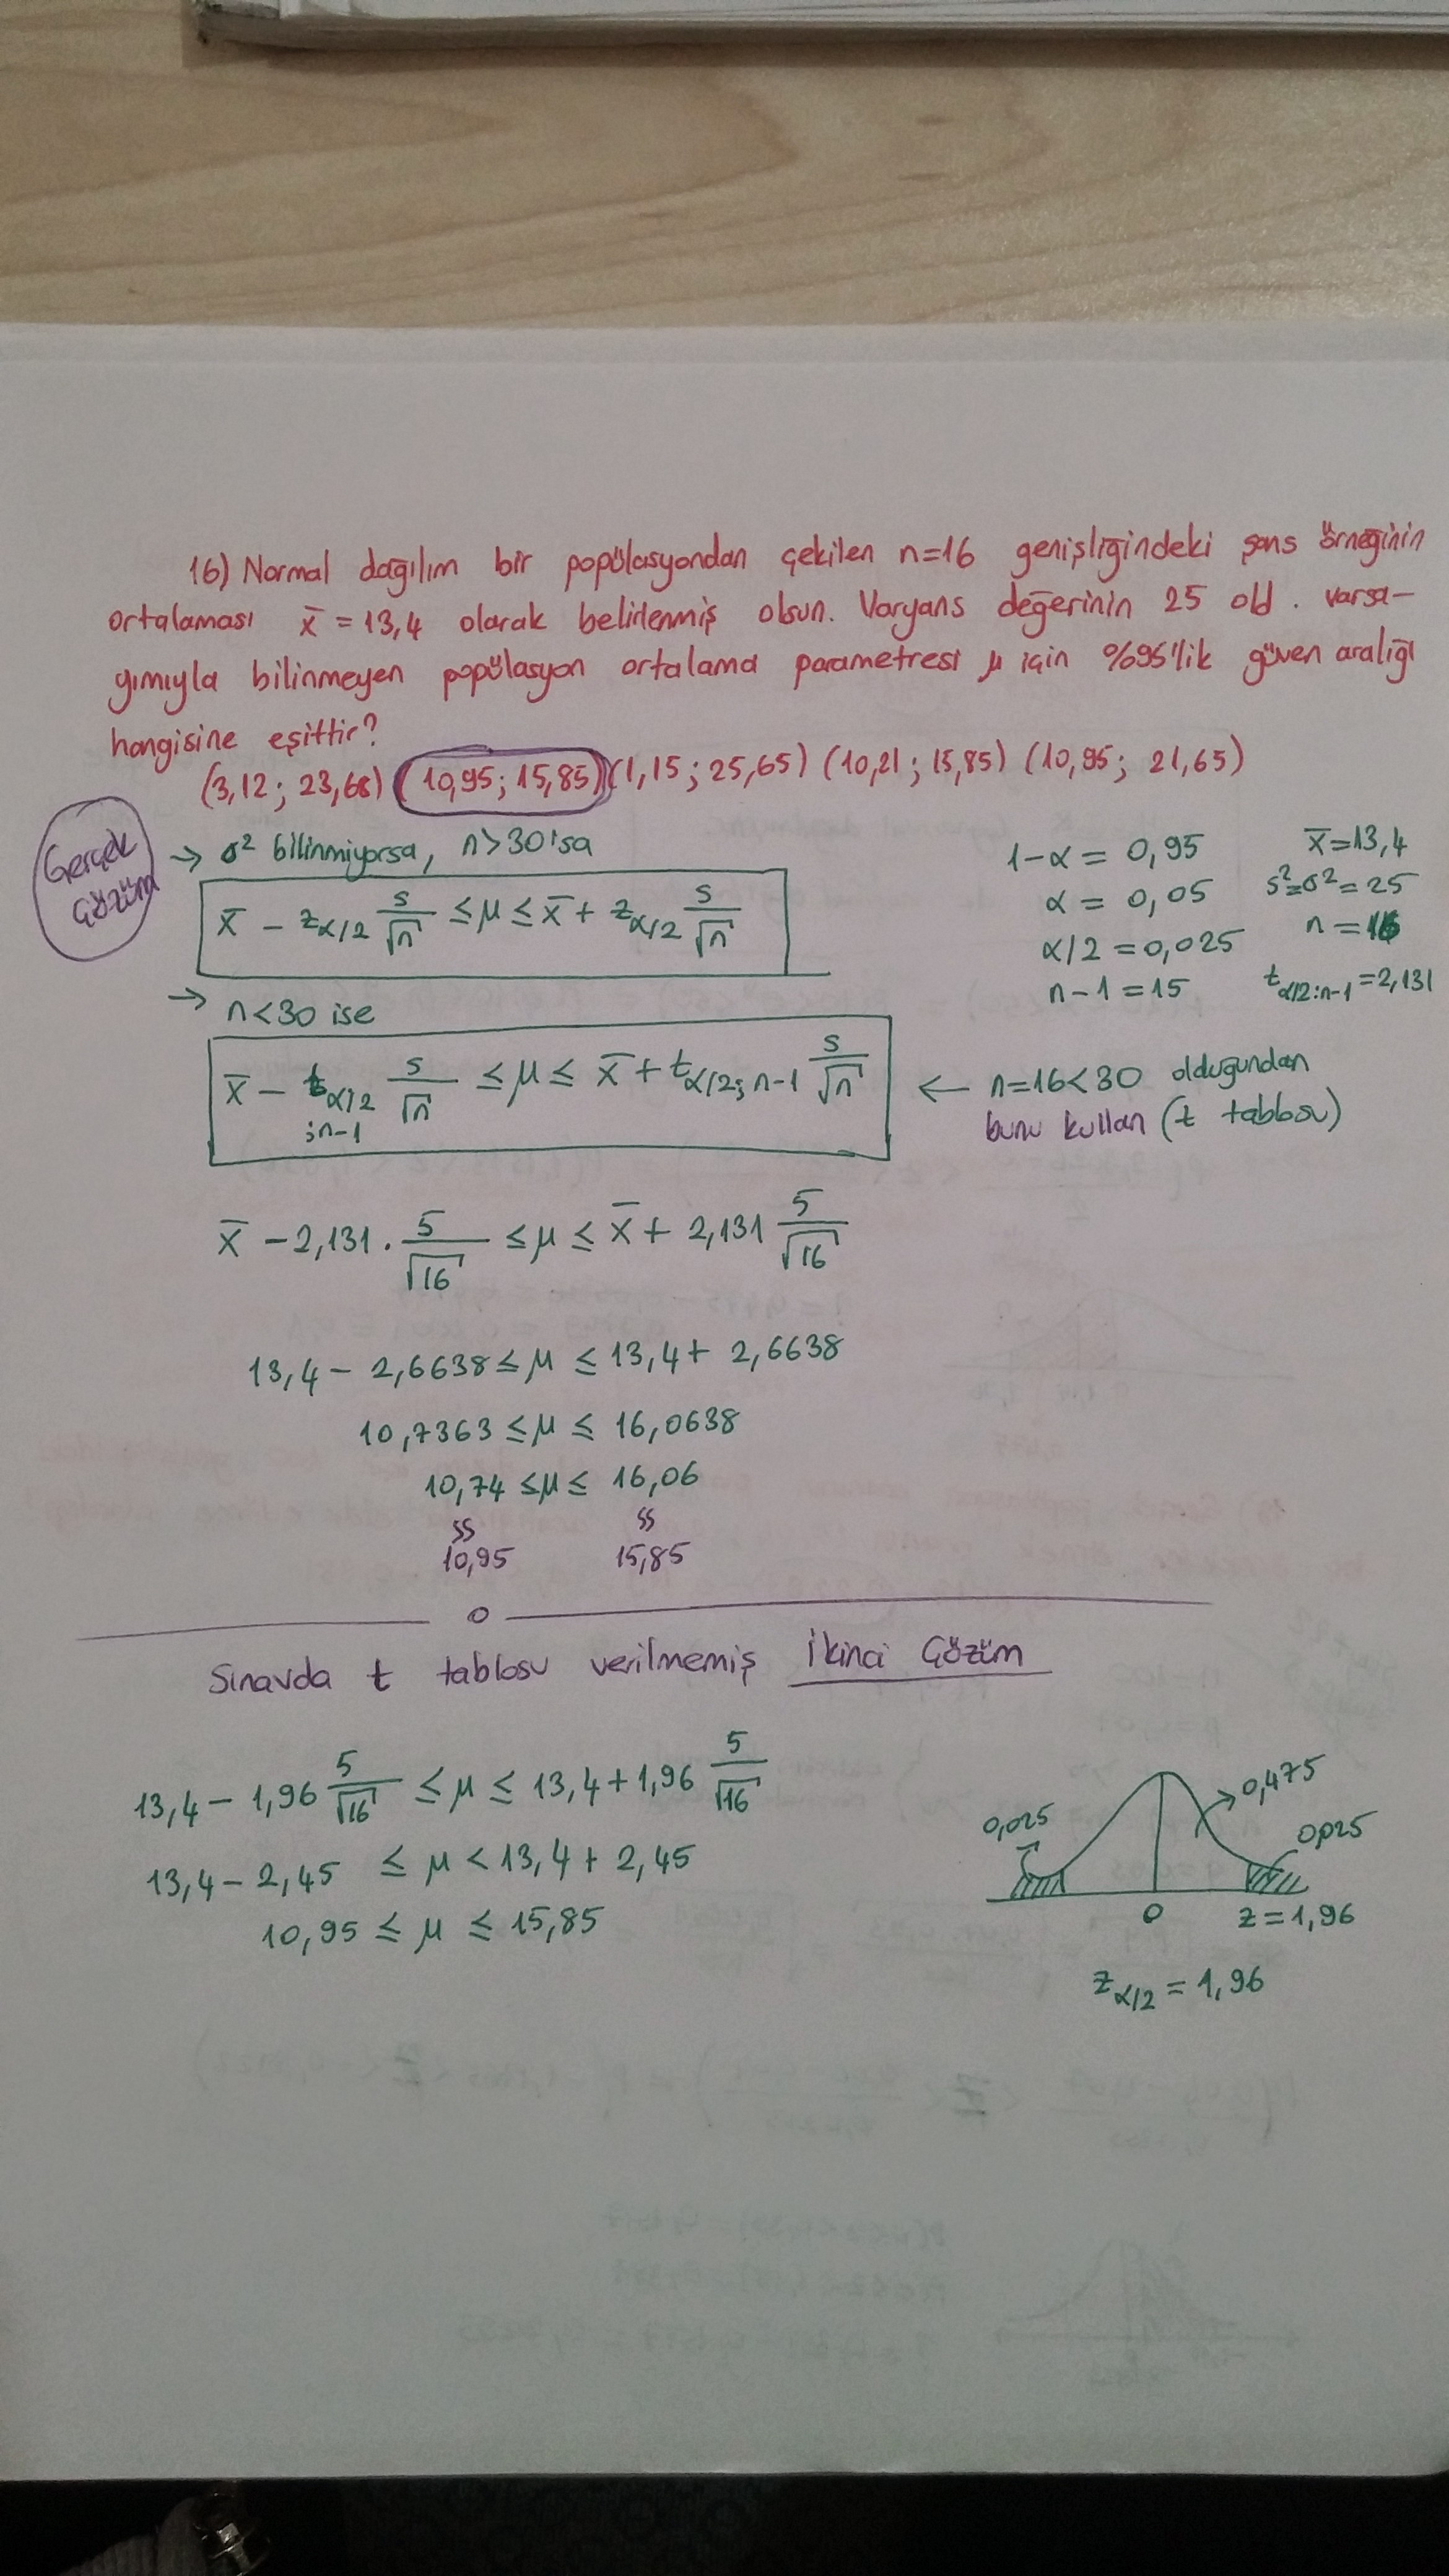 16) Normal dağılım bir popülasyondan çekilen n=16 genişliğindeki şans örneğinin
ortalaması x̄ = 13,4 olarak belirlenmiş olsun. Varyans değerinin 25 old. varsa-
yımıyla bilinmeyen popülasyon ortalama parametresi μ için %95'lik güven aralığı
hangisine eşittir?
(3,12; 23,68) (10,95; 15,85) (1,15; 25,65) (10,21; 15,85) (10,95; 21,65)
Gerçek
Çözüm
→ σ² bilinmiyorsa, n>30'sa
x̄ - z_α/2 s/√n ≤ μ ≤ x̄ + z_α/2 s/√n
→ n<30 ise
x̄ - t_α/2;n-1 s/√n ≤ μ ≤ x̄ + t_α/2;n-1 s/√n
1-α = 0,95
α = 0,05
α/2 = 0,025
n-1 = 15
x̄=13,4
s²=σ²=25
n=16
t_α/2;n-1=2,131
← n=16<30 olduğundan
bunu kullan (t tablosu)
x̄ - 2,131 . 5/√16 ≤ μ ≤ x̄ + 2,131 5/√16
13,4 - 2,6638 ≤ μ ≤ 13,4 + 2,6638
10,7363 ≤ μ ≤ 16,0638
10,74 ≤ μ ≤ 16,06
10,95 15,85
Sınavda t tablosu verilmemiş İkinci Çözüm
13,4 - 1,96 5/√16 ≤ μ ≤ 13,4 + 1,96 5/√16
13,4 - 2,45 ≤ μ < 13,4 + 2,45
10,95 ≤ μ ≤ 15,85
0,025
0,475
0,025
0
z=1,96
z_α/2 = 1,96